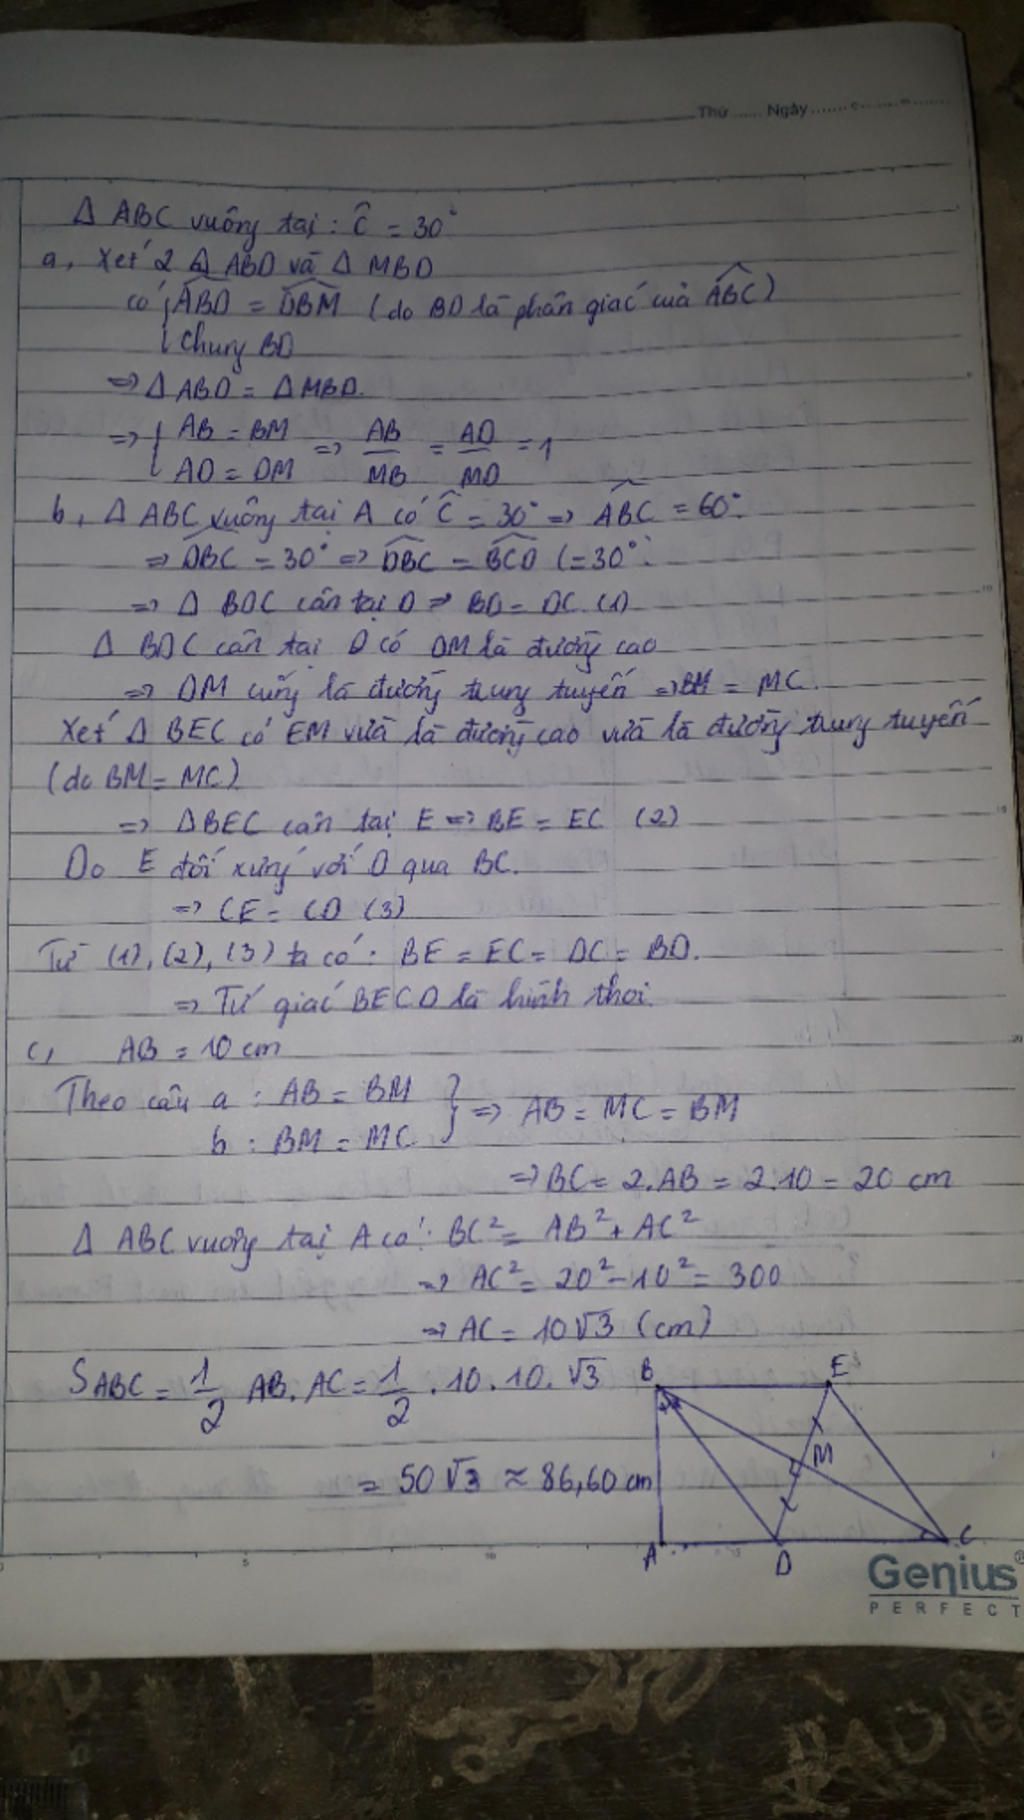 Thứ ...... Ngày ....................
Δ ABC vuông tại : Ĉ = 30°
a, Xét 2 Δ ABD và Δ MBD
có { ABD = DBM (do BD là phân giác của ABC)
chung BD
=> Δ ABD = Δ MBD.
=> { AB = BM => AB/MB = AD/MD = 1
AD = DM
b, Δ ABC vuông tại A có Ĉ = 30° => ABC = 60°.
=> DBC = 30° => DBC = BCD (=30°
=> Δ BDC cân tại D => BD = DC (1)
Δ BDC cân tại D có DM là đường cao
=> DM cũng là đường trung tuyến => BM = MC.
Xét Δ BEC có EM vừa là đường cao vừa là đường trung tuyến
(do BM = MC)
=> ΔBEC cân tại E => BE = EC (2)
Do E đối xứng với D qua BC.
=> CE = CD (3)
Từ (1), (2), (3) ta có : BE = EC = DC = BD.
=> Tứ giác BECD là hình thoi.
c, AB = 10 cm
Theo câu a : AB = BM
b : BM = MC } => AB = MC = BM
=> BC = 2.AB = 2.10 = 20 cm
Δ ABC vuông tại A có : BC² = AB² + AC²
=> AC² = 20² - 10² = 300
=> AC = 10√3 (cm)
S ABC = 1/2 AB. AC = 1/2 . 10 . 10. √3
= 50√3 ≈ 86,60 cm
B E
M
A D C
Genius®
PERFECT